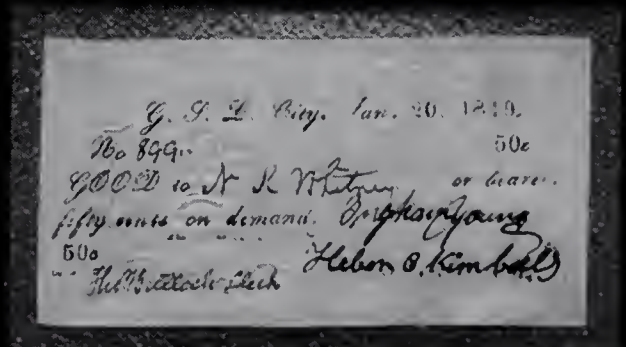 G. S. L. City. Jan. 20. 1849.
No 899. 50c
GOOD to N K Whitney or bearer.
fifty cents on demand. Brigham Young
50c Heber C. Kimball
Tho Bullock Clerk